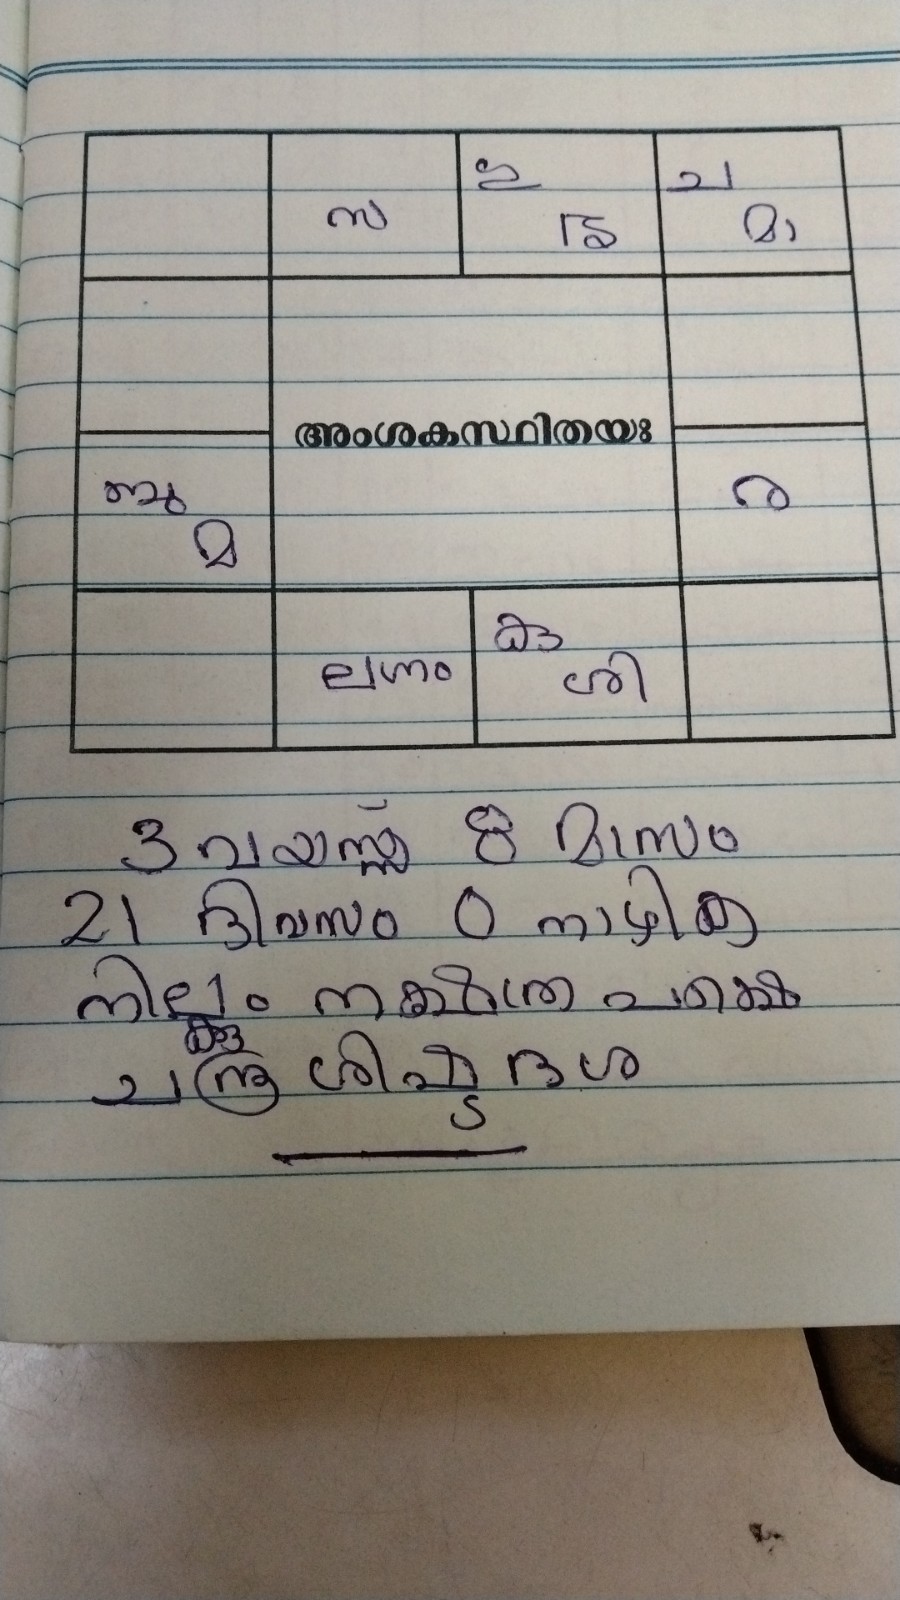 സ
ഗു
ച
മാ
അംശകസ്ഥിതയഃ
ബു
മ
ര
ലഗ്നം
കു
ശി
3 വയസ്സ് 8 മാസം
21 ദിവസം 0 നാഴിക
നില്ക്കും നക്ഷത്ര പക്ഷെ
ചന്ദ്ര ശിഷ്ട ദശ